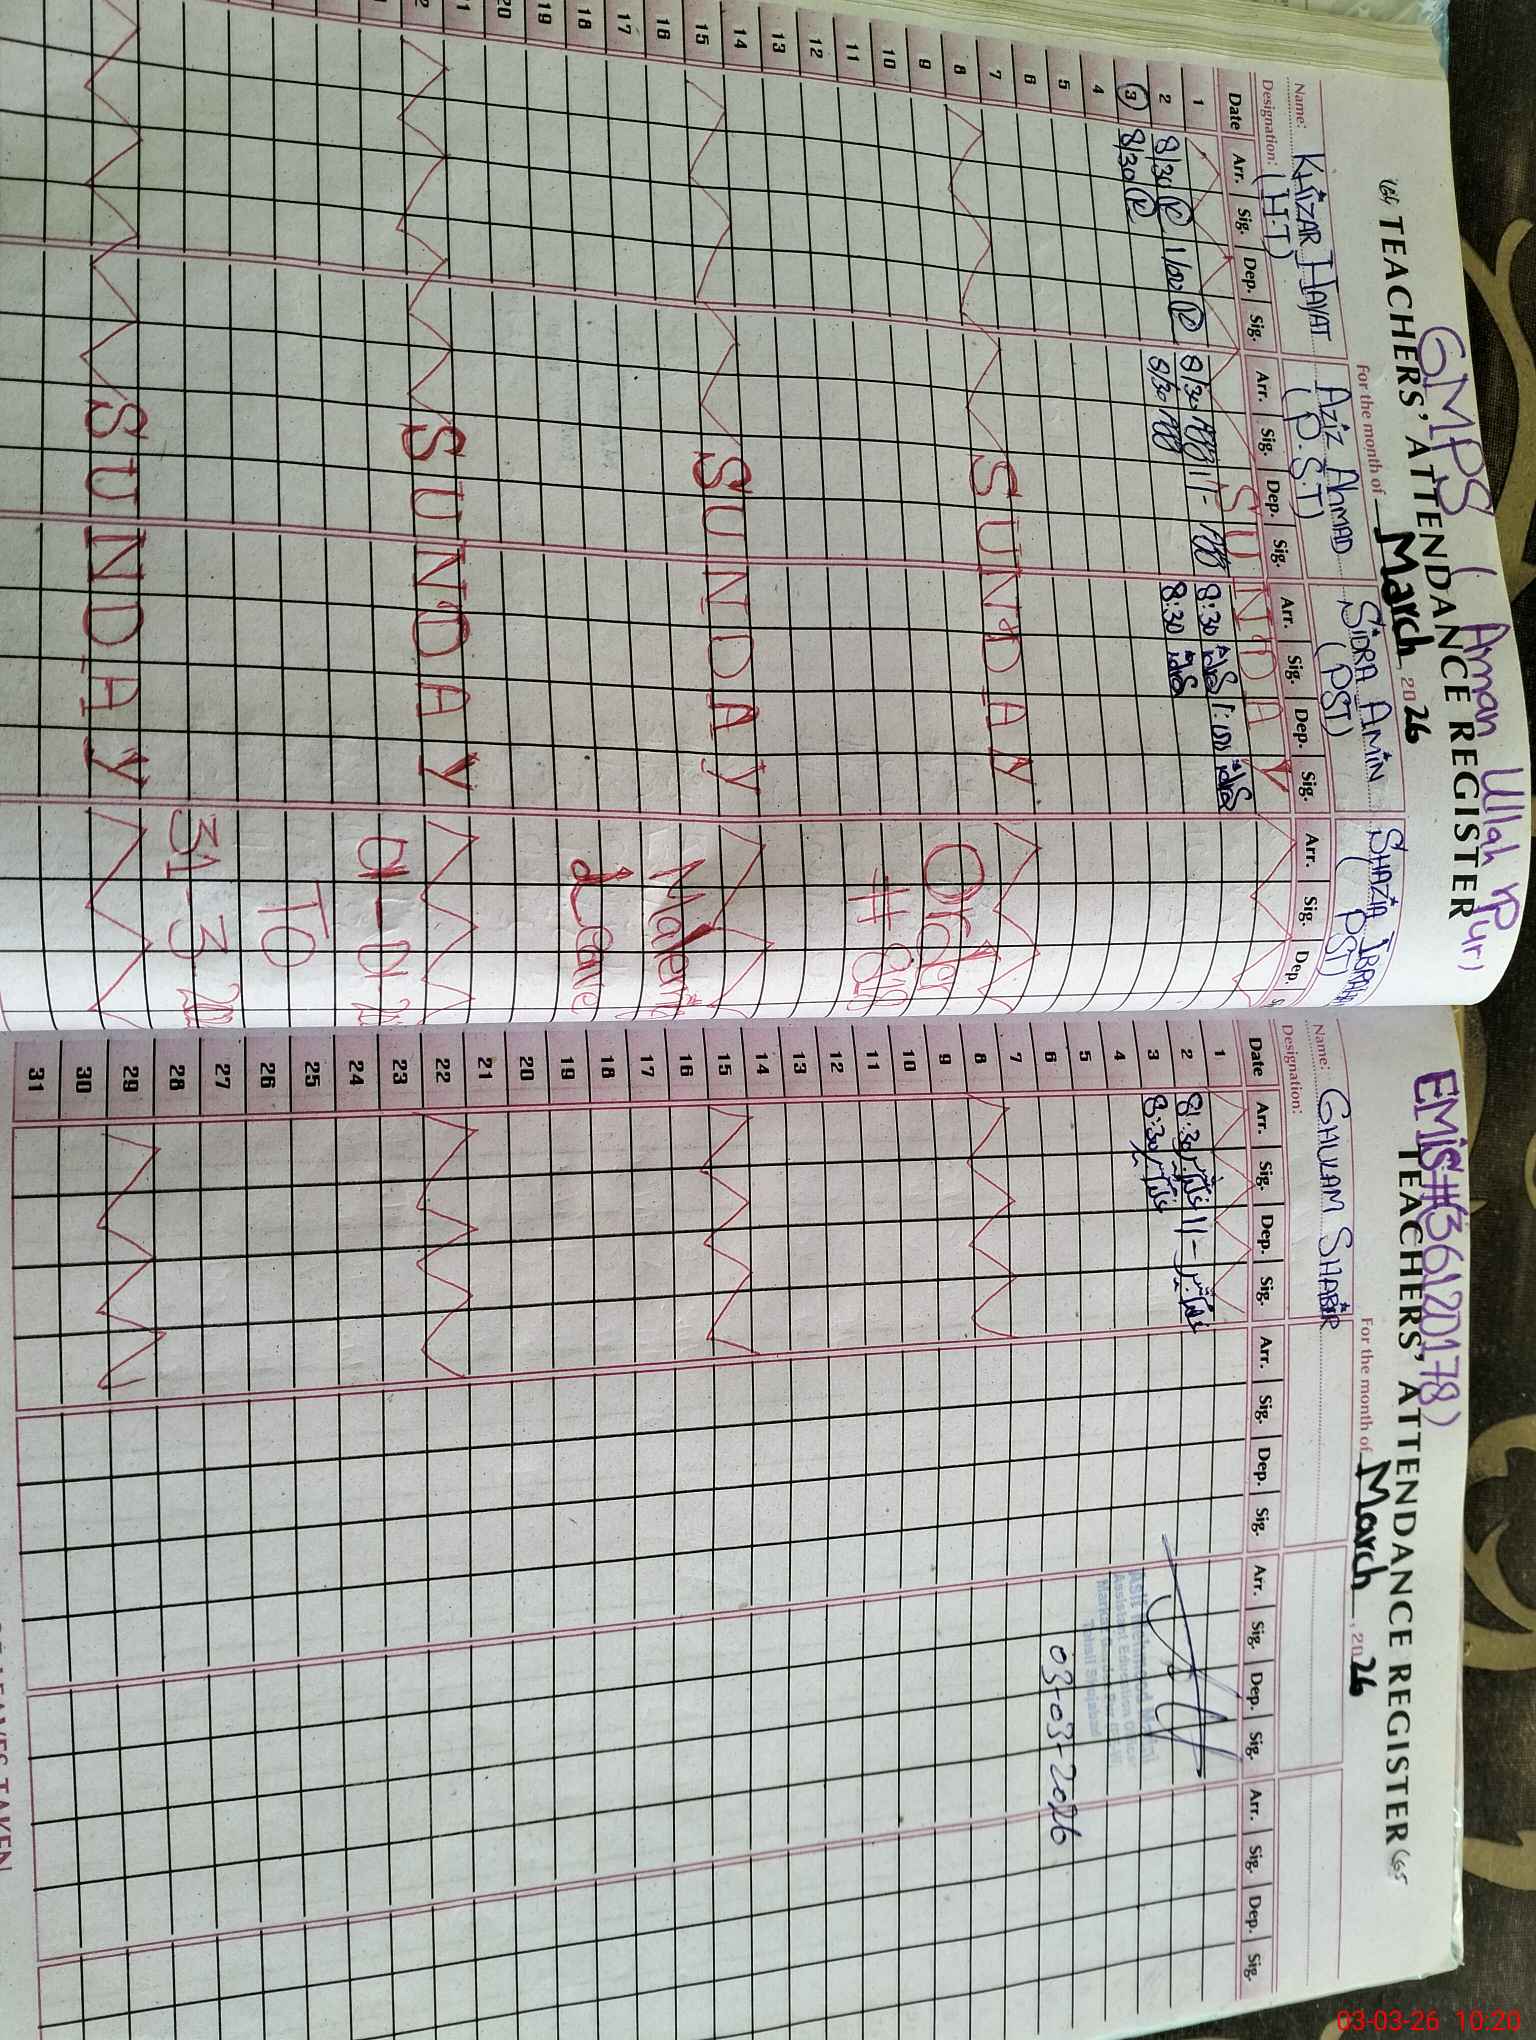 GMPS ( Aman Ullah Pur)
TEACHERS' ATTENDANCE REGISTER
For the month of March 2026
Name: KHIZAR HAYAT
Designation: (HT)
AZIZ AHMAD
(P.S.T)
SIDRA AMIN
(PST)
SHAZIA
(PST)
Date Arr. Sig. Dep. Sig. Arr. Sig. Dep. Sig. Arr. Sig. Dep. Sig. Arr. Sig. Dep.
1 SUNDAY
2 8/30 1/00 8/30 11- 8:30 1:00
3 8/30 8/30 8:30
4
5
6
7
8 SUNDAY
9 Order
10
11 #
12
13
14
15 SUNDAY
16
17
18 Leave
19
20
21
22 SUNDAY
TO
31-3
SUNDAY
EMIS#(36120178)
TEACHERS' ATTENDANCE REGISTER
For the month of March, 2026
Name: GHULAM SHABIR
Designation:
Date Arr. Sig. Dep. Sig. Arr. Sig. Dep. Sig. Arr. Sig. Dep. Sig. Arr. Sig. Dep. Sig.
1
2 8:30 11-
3 8:30
4
5
6 03-03-2026
7
8
9
10
11
12
13
14
15
16
17
18
19
20
21
22
23
24
25
26
27
28
29
30
31
LEAVES TAKEN
03-03-26 10:20